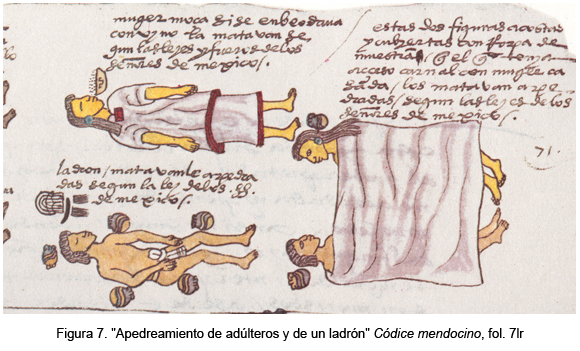 muger moça si se enbeodava
con vino la matavan se
gun las leyes y fueros de los
señores de mexico /.
estas dos figuras acostadas
y cubiertas con ropa de
muestran / q̃ el q̃ tenya
açeso carnal con muger ca
sada / los matavan a pe
dradas / segun las leyes de los
señores de mexico /.
71.
ladron / matavanle a pedra
das segun la ley de los SS.
de mexico /.
Figura 7. "Apedreamiento de adúlteros y de un ladrón" Códice mendocino, fol. 7lr